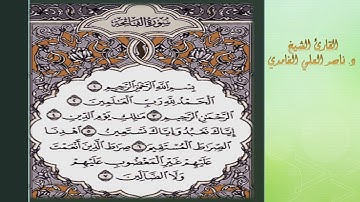 سورة الفاتحة
بِسْمِ اللَّهِ الرَّحْمَٰنِ الرَّحِيمِ ١
الْحَمْدُ لِلَّهِ رَبِّ الْعَالَمِينَ ٢
الرَّحْمَٰنِ الرَّحِيمِ ٣ مَالِكِ يَوْمِ الدِّينِ ٤
إِيَّاكَ نَعْبُدُ وَإِيَّاكَ نَسْتَعِينُ ٥ اهْدِنَا
الصِّرَاطَ الْمُسْتَقِيمَ ٦ صِرَاطَ الَّذِينَ أَنْعَمْتَ
عَلَيْهِمْ غَيْرِ الْمَغْضُوبِ عَلَيْهِمْ
وَلَا الضَّالِّينَ ٧
القارئ الشيخ
د. ناصر العلي الغامدي